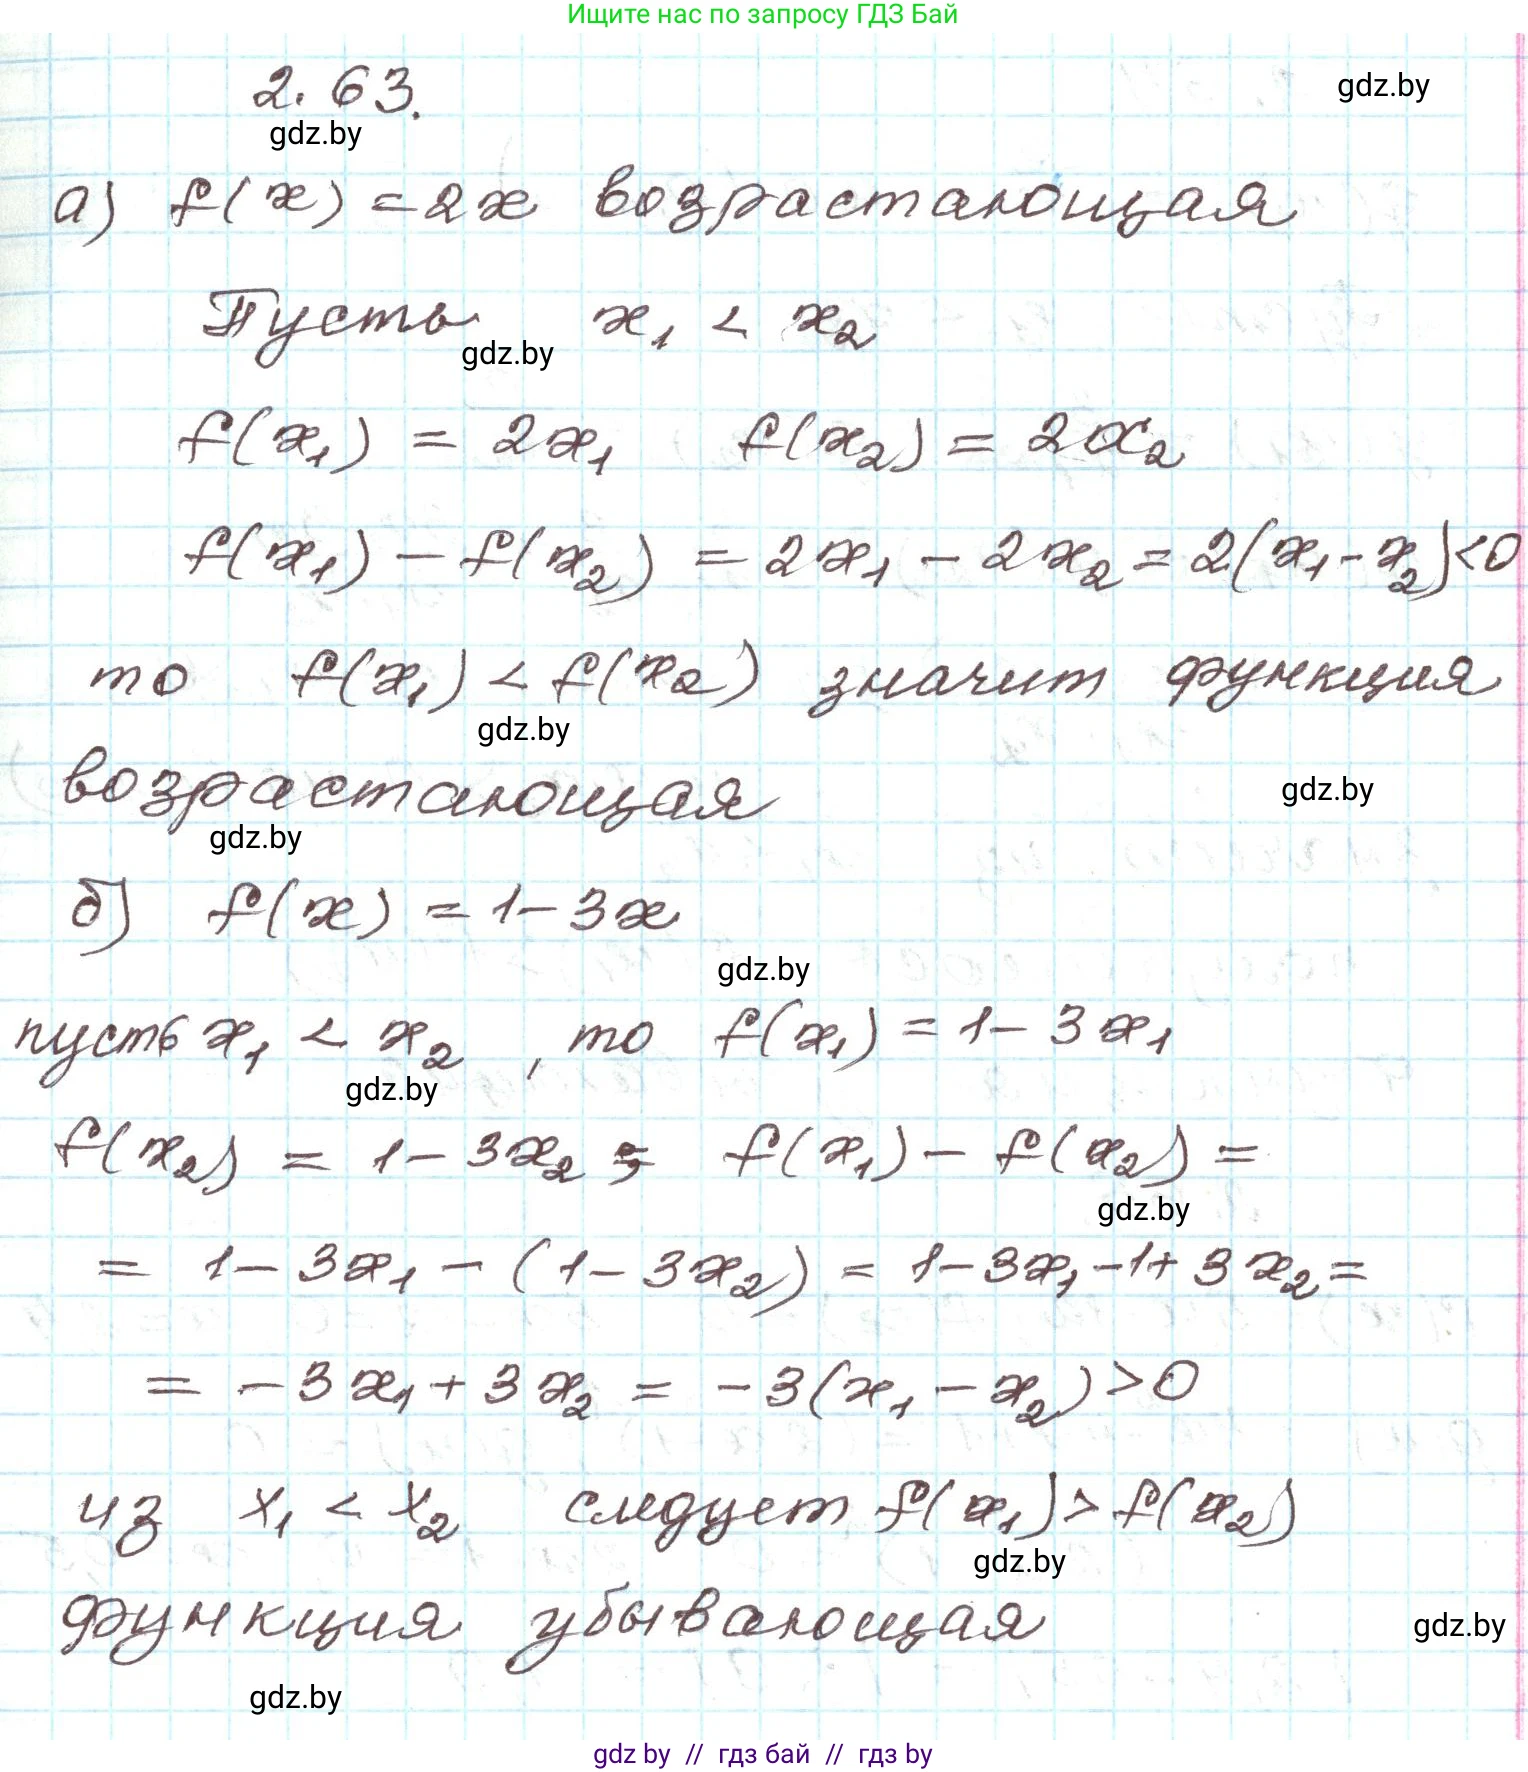 Ищите нас по запросу ГДЗ Бай
2.63.
gdz.by
gdz.by
а) f(x) = 2x возрастающая
Пусть x₁ < x₂
gdz.by
f(x₁) = 2x₁ f(x₂) = 2x₂
f(x₁) - f(x₂) = 2x₁ - 2x₂ = 2(x₁ - x₂) < 0
то f(x₁) < f(x₂) значит функция
gdz.by
возрастающая
gdz.by
gdz.by
б) f(x) = 1 - 3x
gdz.by
пусть x₁ < x₂, то f(x₁) = 1 - 3x₁
gdz.by
f(x₂) = 1 - 3x₂; f(x₁) - f(x₂) =
gdz.by
= 1 - 3x₁ - (1 - 3x₂) = 1 - 3x₁ - 1 + 3x₂ =
= - 3x₁ + 3x₂ = - 3(x₁ - x₂) > 0
из x₁ < x₂ следует f(x₁) > f(x₂)
gdz.by
функция убывающая
gdz.by
gdz.by
gdz by // гдз бай // гдз by